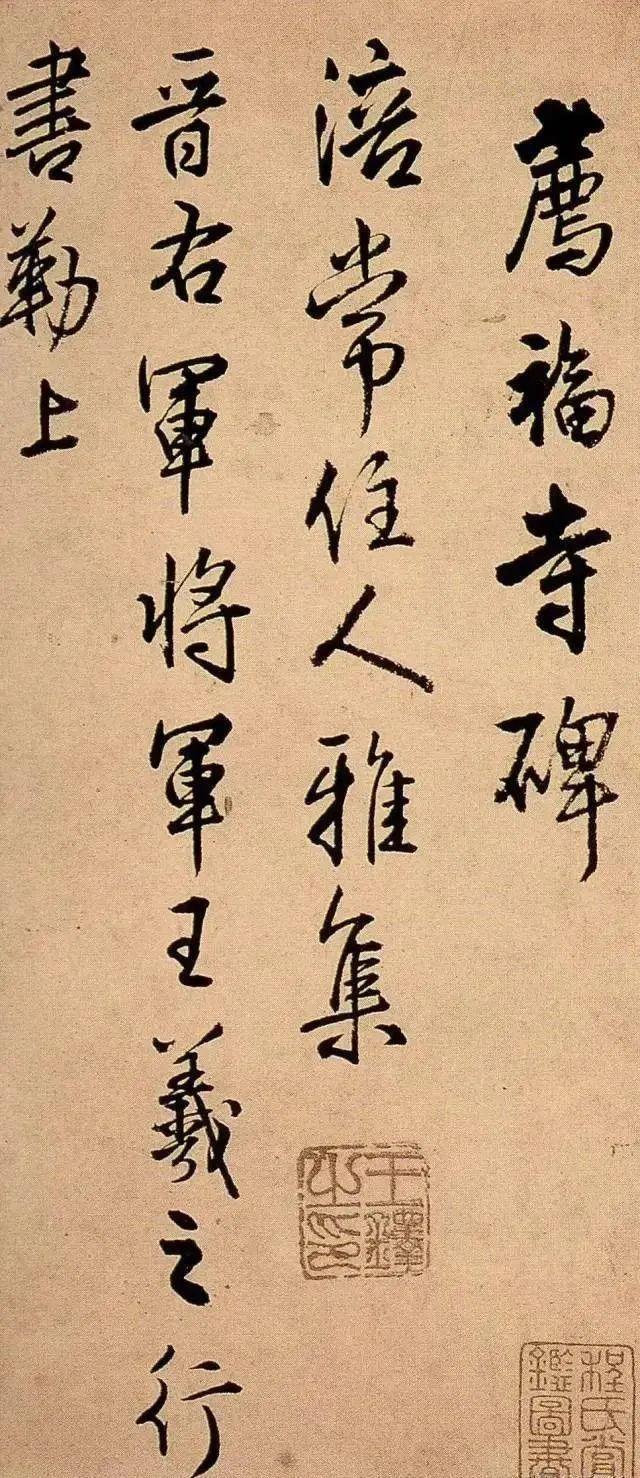 薦福寺碑
涪常住人雅集
晉右軍將軍王羲之行
書勒上
王鐸之印
程氏賞鑑圖書